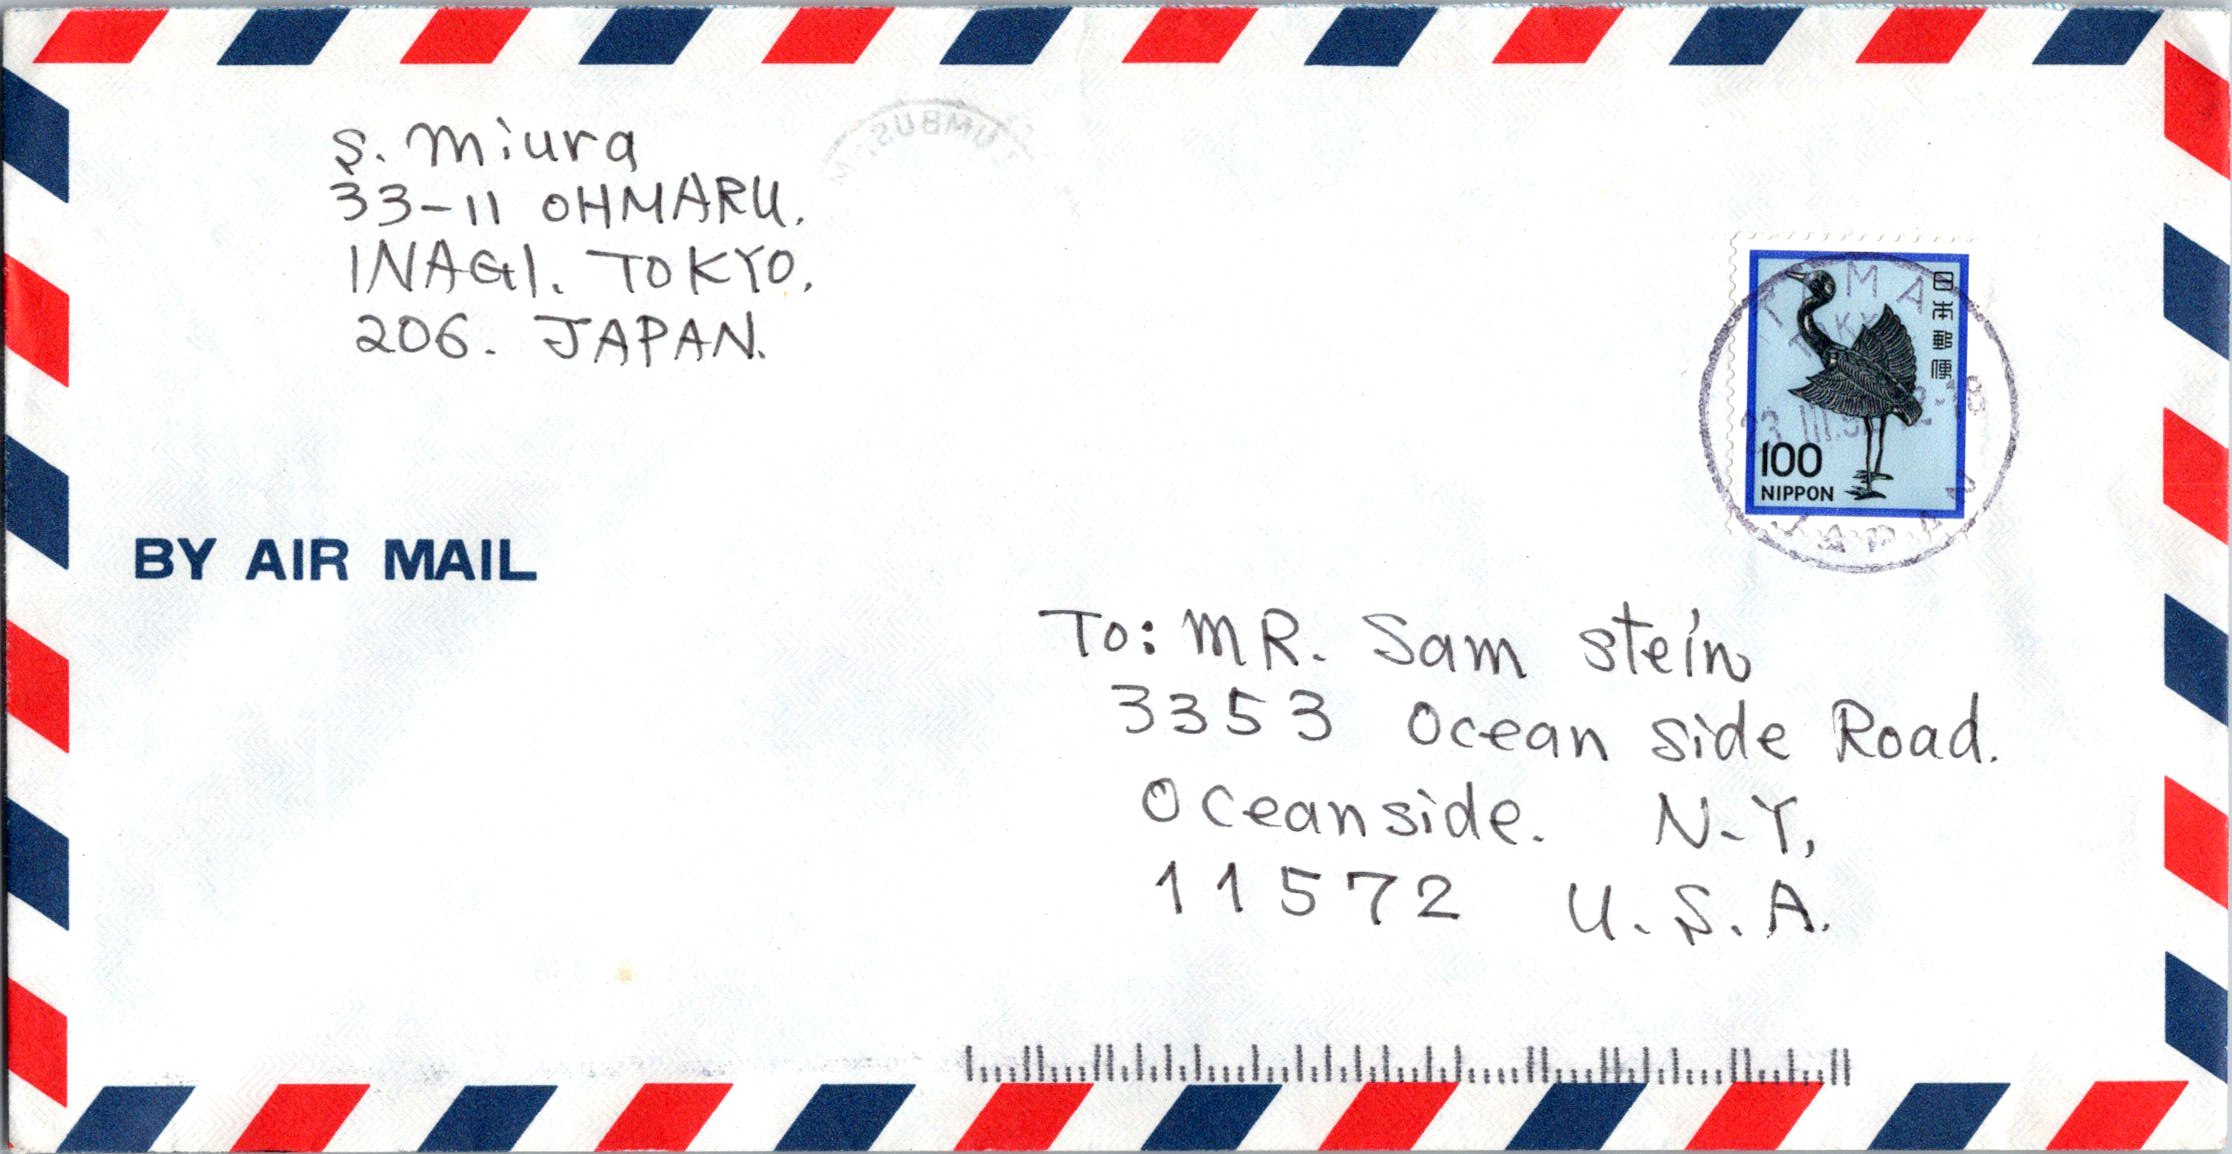 S. Miura
33-11 OHMARU.
INAGI. TOKYO.
206. JAPAN.
UMBUS,
日本郵便
100
NIPPON
TAMA
23 III.
JAPAN
BY AIR MAIL
To: MR. Sam Stein
3353 Ocean side Road.
Oceanside. N-Y,
11572 U.S.A.